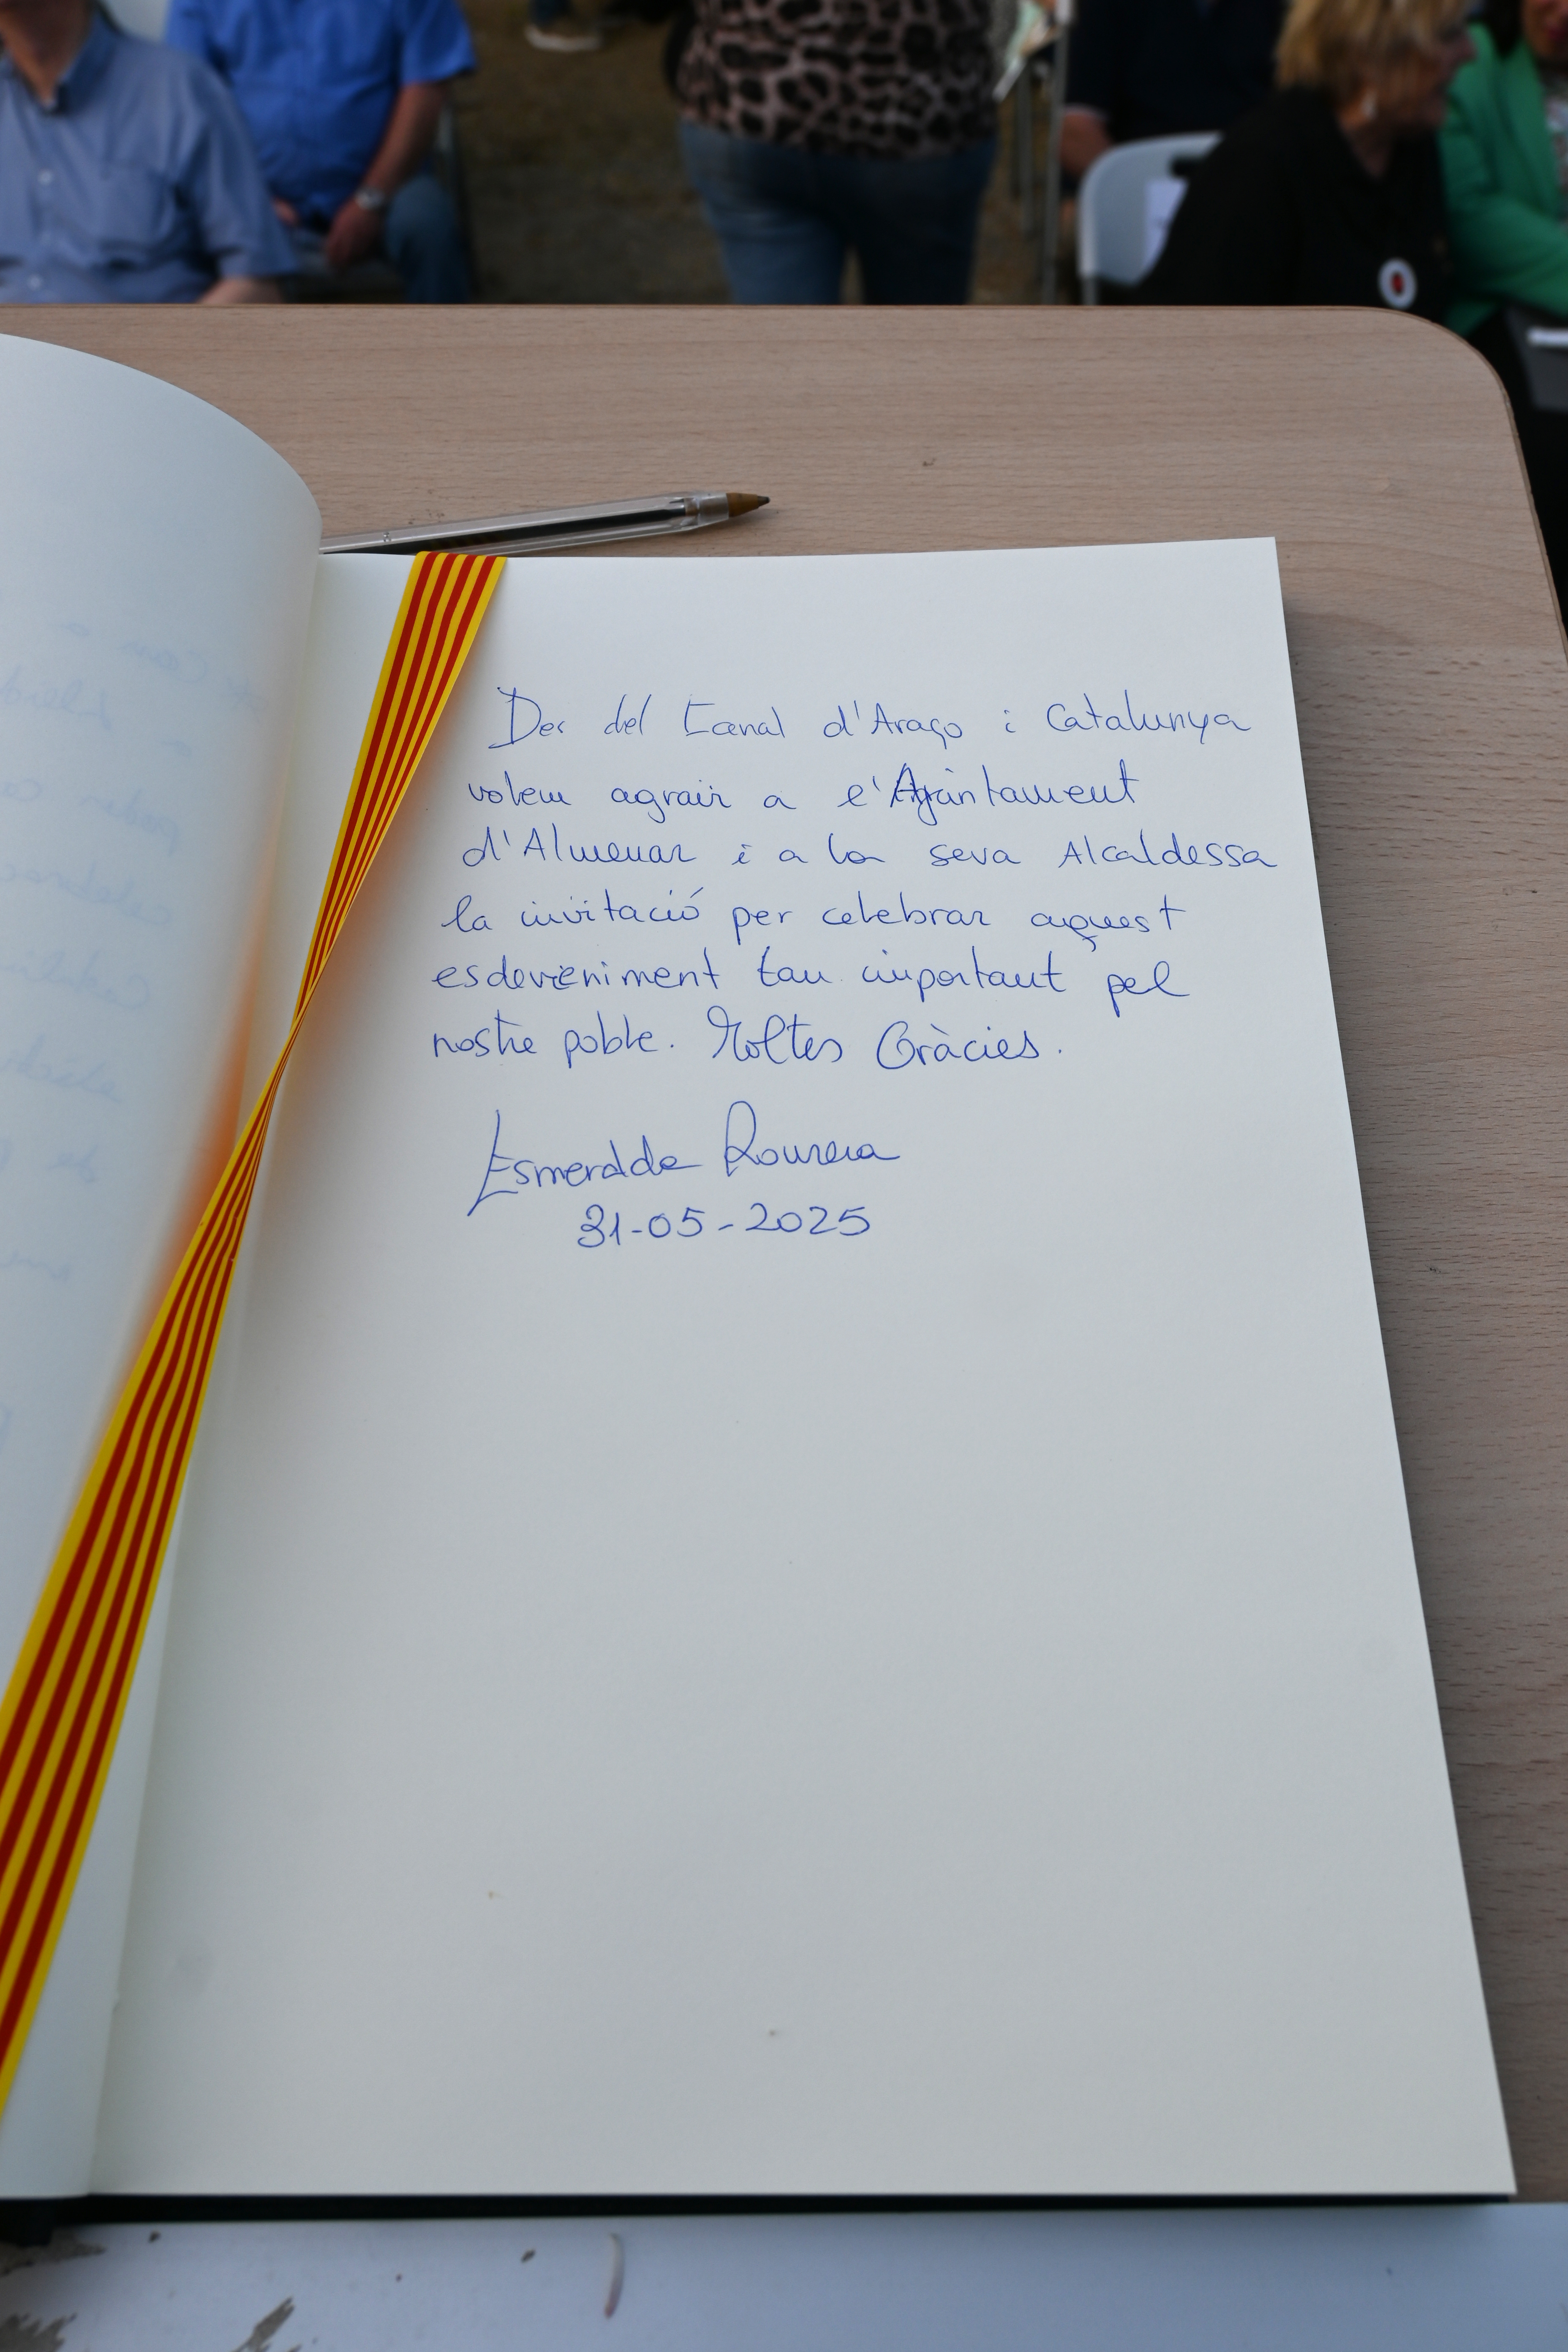 Des del Canal d'Araço i Catalunya
volem agrair a l'Ajuntament
d'Almenar i a la seva Alcaldessa
la invitació per celebrar aquest
esdeveniment tan important pel
nostre poble. Moltes Gràcies.
Esmeralda Rourera
31-05-2025